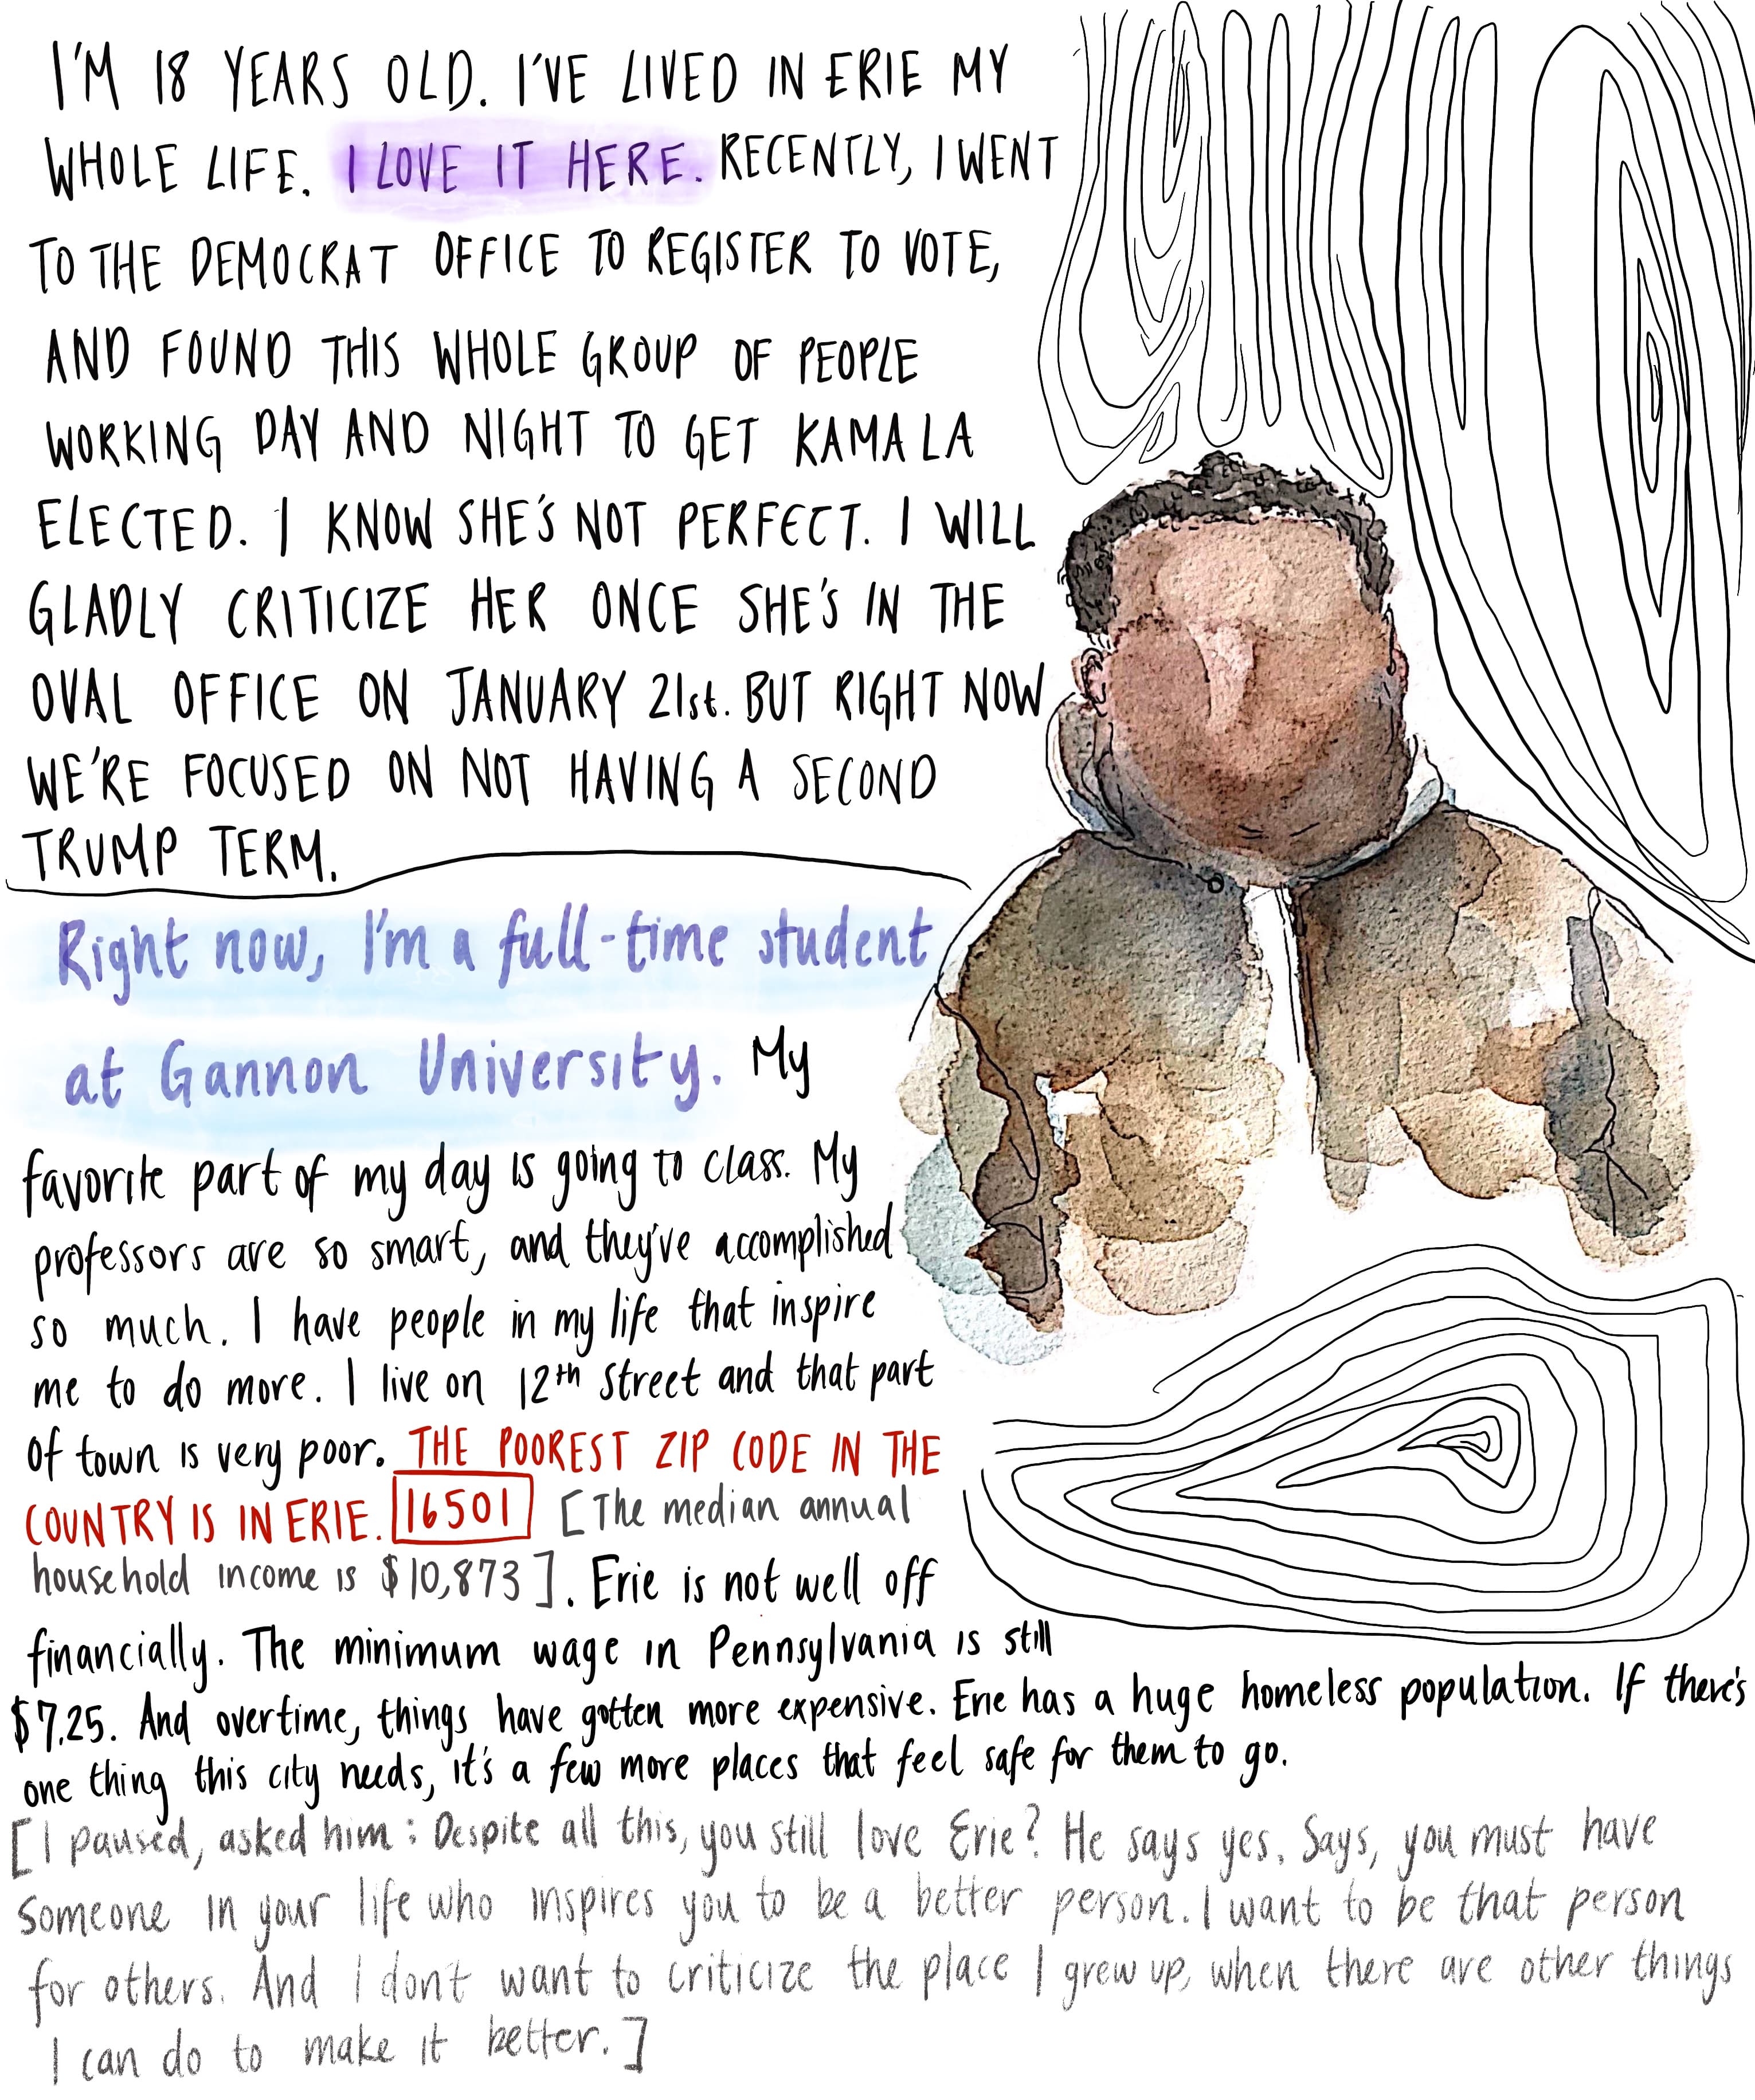 I'M 18 YEARS OLD. I'VE LIVED IN ERIE MY
WHOLE LIFE. I LOVE IT HERE. RECENTLY, I WENT
TO THE DEMOCRAT OFFICE TO REGISTER TO VOTE,
AND FOUND THIS WHOLE GROUP OF PEOPLE
WORKING DAY AND NIGHT TO GET KAMALA
ELECTED. I KNOW SHE'S NOT PERFECT. I WILL
GLADLY CRITICIZE HER ONCE SHE'S IN THE
OVAL OFFICE ON JANUARY 21st. BUT RIGHT NOW
WE'RE FOCUSED ON NOT HAVING A SECOND
TRUMP TERM.
Right now, I'm a full-time student
at Gannon University. My
favorite part of my day is going to class. My
professors are so smart, and they've accomplished
so much. I have people in my life that inspire
me to do more. I live on 12th street and that part
of town is very poor. THE POOREST ZIP CODE IN THE
COUNTRY IS IN ERIE. 16501 [The median annual
household income is $10,873]. Erie is not well off
financially. The minimum wage in Pennsylvania is still
$7.25. And overtime, things have gotten more expensive. Erie has a huge homeless population. If there's
one thing this city needs, it's a few more places that feel safe for them to go.
[I paused, asked him: Despite all this, you still love Erie? He says yes. Says, you must have
someone in your life who inspires you to be a better person. I want to be that person
for others. And I don't want to criticize the place I grew up, when there are other things
I can do to make it better.]